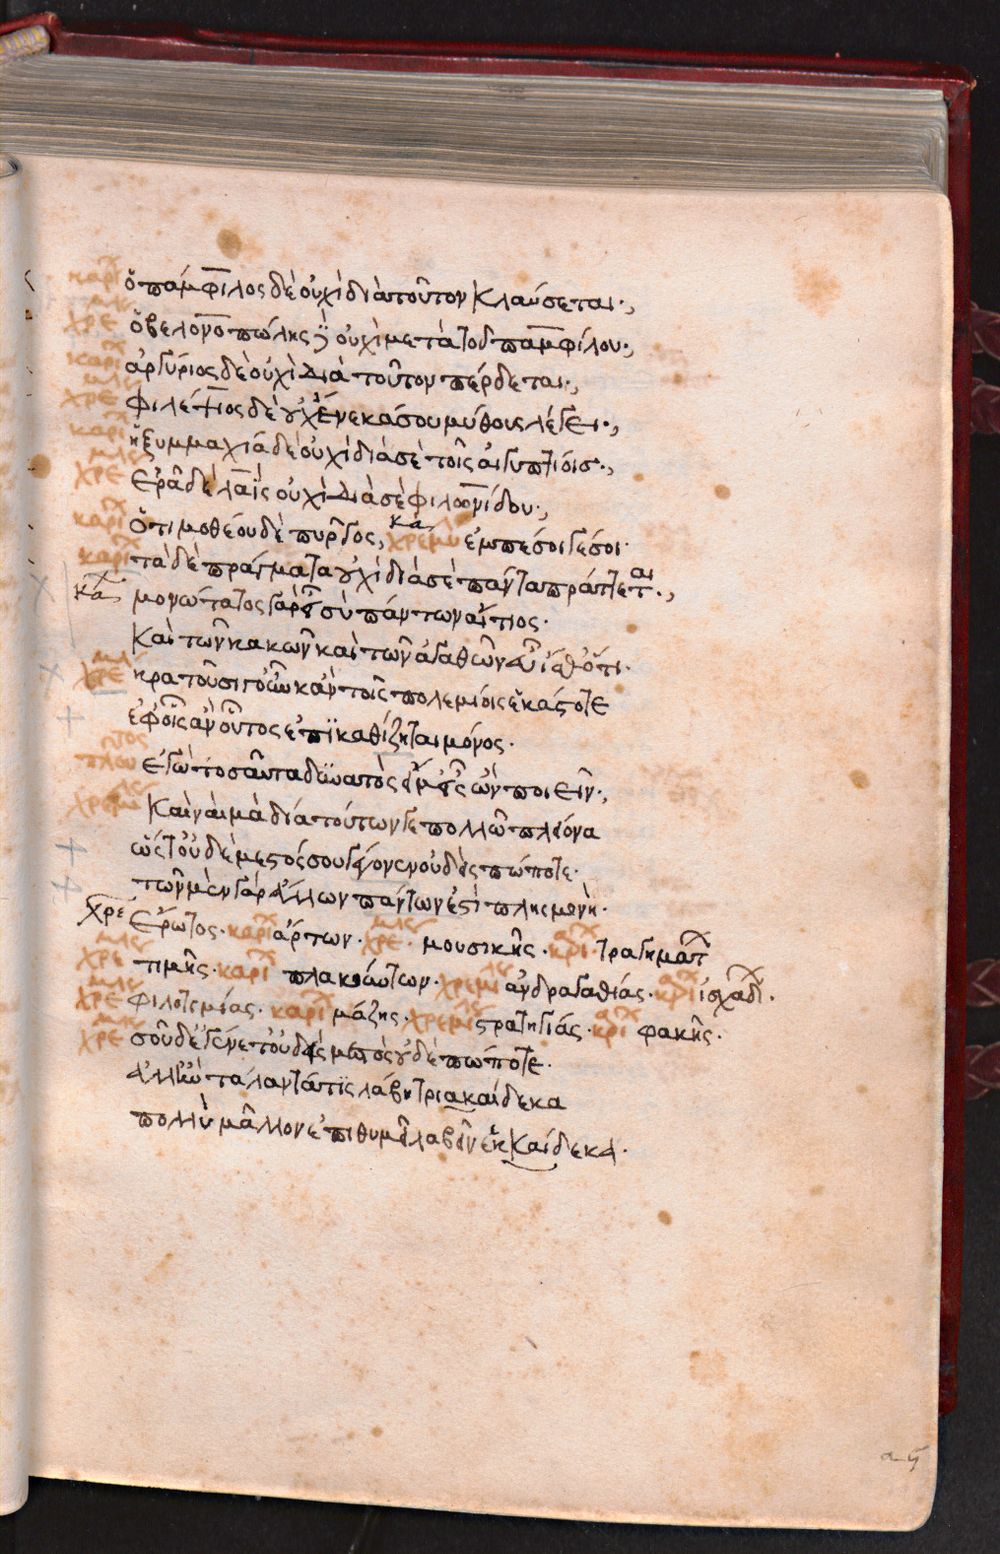 καρί ὁ πάμφιλος δὲ οὐχὶ διὰ τοῦτον κλαύσεται·,
χρε ὁ βελονοπώλης δ' οὐχὶ μετὰ τοῦ παμφίλου·,
καρί ἀργύριος δὲ οὐχὶ διὰ τοῦτον πέρδεται·,
χρε φιλέψιος δὲ οὐχ ἕνεκα σοῦ μύθους λέγει·,
καρί ἡ ξυμμαχία δὲ οὐχὶ διὰ σὲ τοῖς αἰγυπτίοισ·,
χρε ἐρᾶ δὲ λαῒς οὐχὶ διὰ σὲ φιλωνίδου·,
καρί ὁ τιμοθέου δὲ πύργος, κα χρεμυ ἐμπέσοι γέ σοι·
καρί τὰ δὲ πράγματα οὐχὶ διὰ σὲ πάντα πράττεται·,
κα μονώτατος γὰρ εἶ σὺ πάντων αἴτιος·
καὶ τῶν κακῶν καὶ τῶν ἀγαθῶν εὖ ἴσθ' ὅτι·
χρε κρατοῦσι γοῦν κἀν τοῖς πολεμίοις ἑκάστοτε
ἐφ' οἷς ἂν οὗτος ἐπικαθίζηται μόνος·
πλου ἐγὼ τοσαῦτα δυνατός εἰμ' εἷς ὢν ποιεῖν·,
χρεμυ καὶ ναὶ μὰ δία τούτων γε πολλῶ πλείονα
ὥστ' οὐδὲ μεστός σου γέγονεν οὐδεὶς πώποτε·
τῶν μὲν γὰρ ἄλλων πάντων ἐστὶ πλησμονή·
χρε ἔρωτος· καρί ἄρτων· χρε· μουσικῆς· καρι τραγημάτ
χρε τιμῆς· καρί πλακούντων· χρεμυ ἀνδραγαθίας· καρι ἰσχάδ·
χρε φιλοτιμίας· καρί μάζης· χρεμυ στρατηγίας· καρι φακῆς·
χρε σοῦ δ' ἐγένετ' οὐδεὶς μεστὸς οὐδὲ πώποτε·
ἀλλ' ἢν τάλαντά τις λάβῃ τριακαίδεκα
πολὺ μᾶλλον ἐπιθυμεῖ λαβεῖν ἑκκαίδεκα·